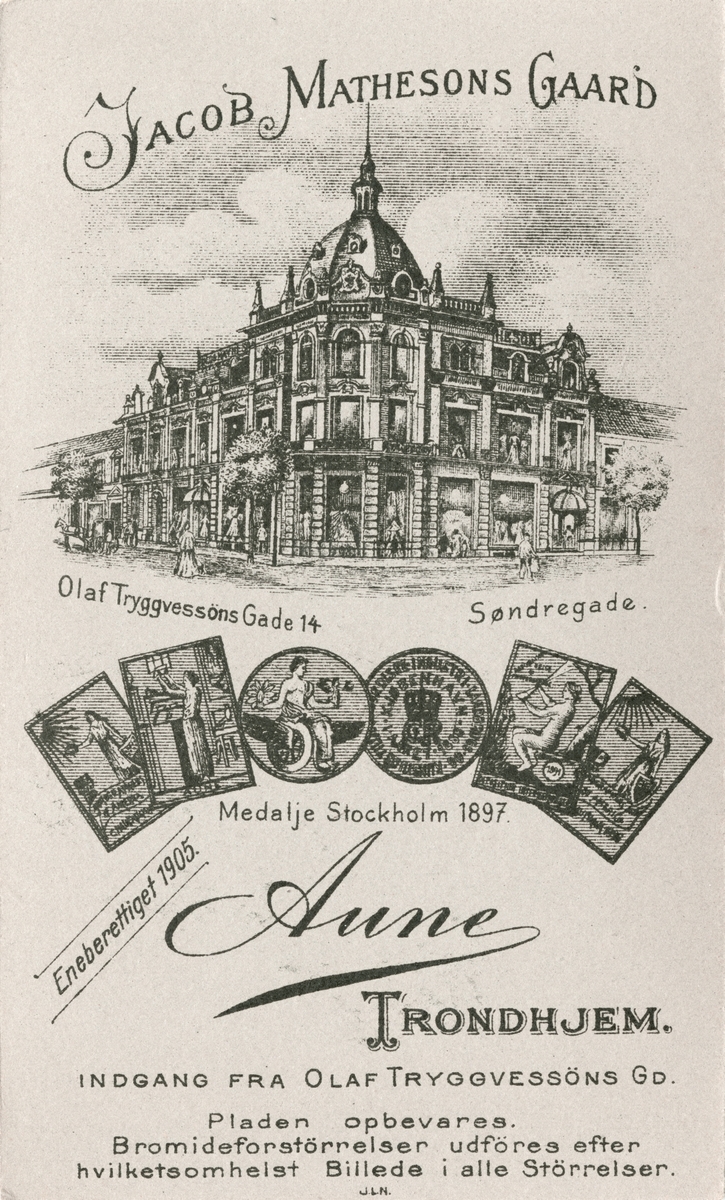 Jacob Mathesons Gaard
Olaf Tryggvessöns Gade 14
Søndregade.
KJØBENHAVN
1891
Medalje Stockholm 1897.
Eneberettiget 1905.
Aune
Trondhjem.
INDGANG FRA OLAF TRYGGVESSÖNS GD.
Pladen opbevares.
Bromideforstörrelser udföres efter
hvilketsomhelst Billede i alle Störrelser.
J.L.N.